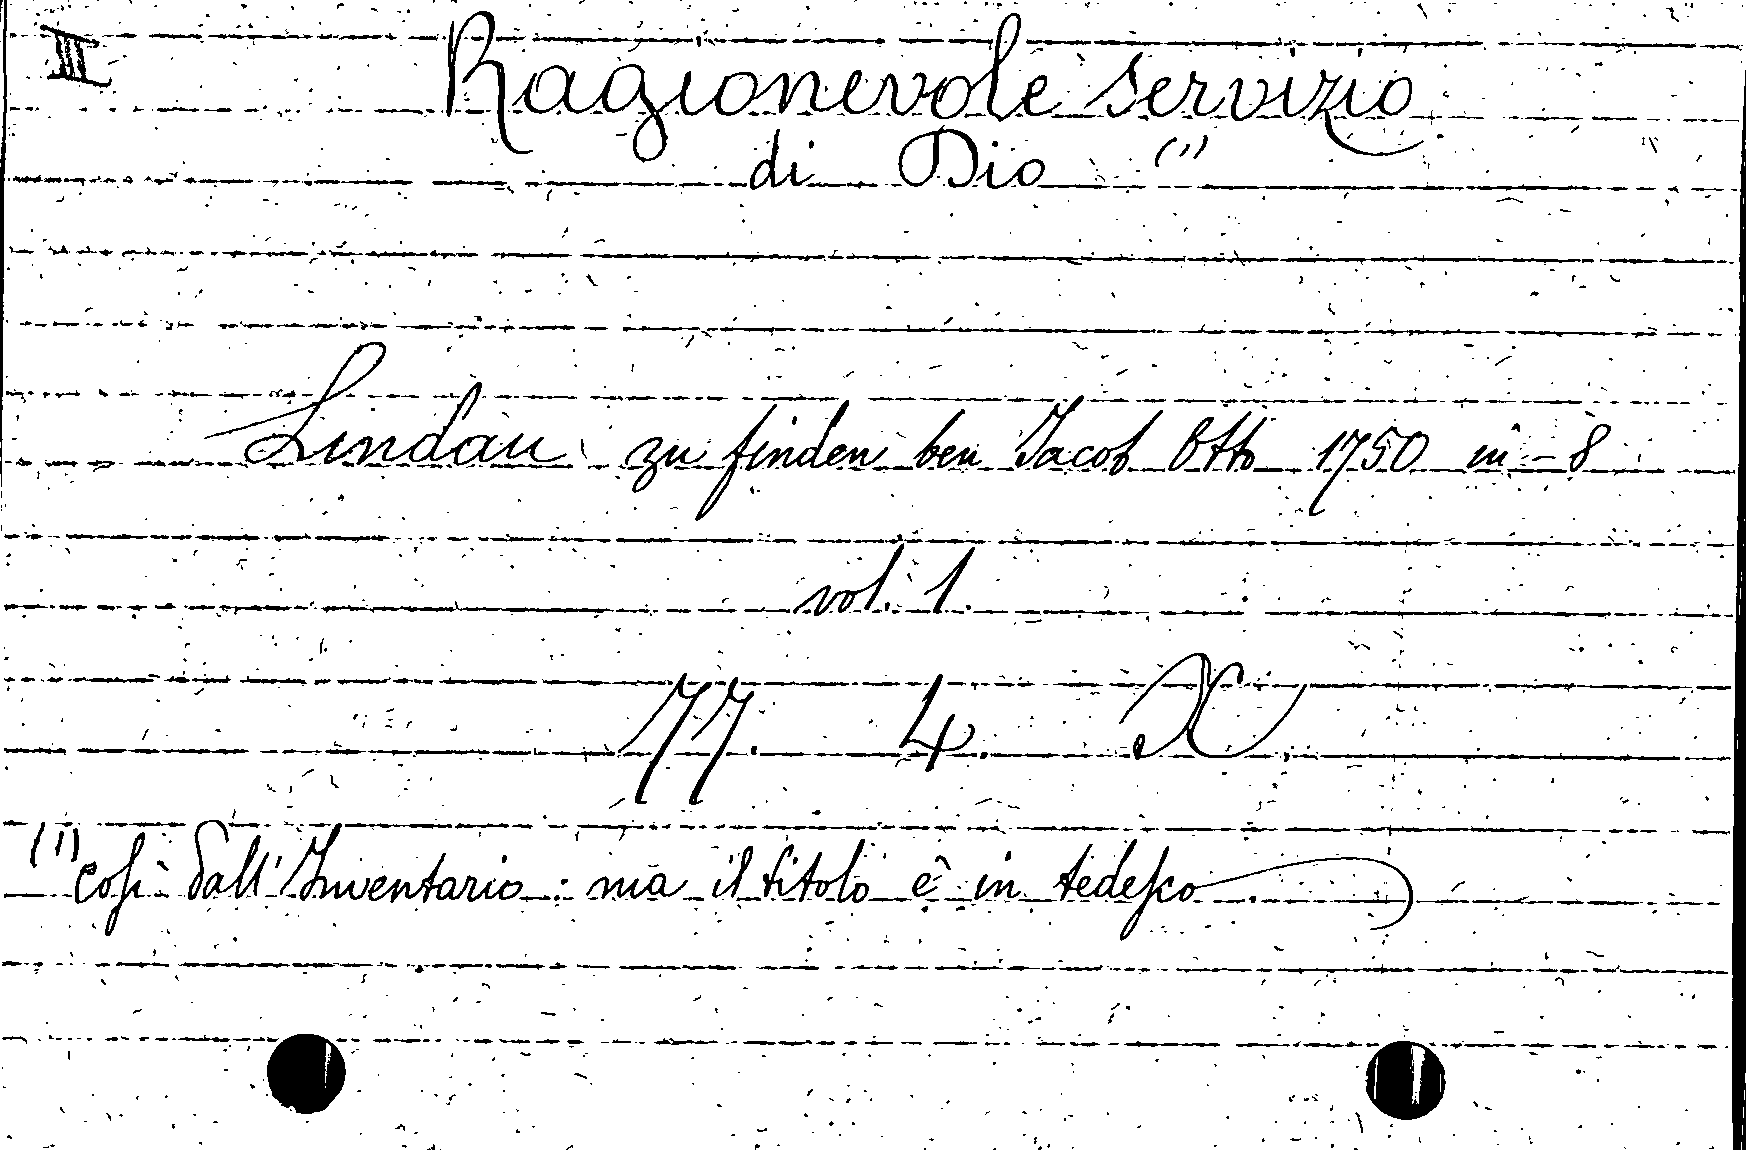 III
Ragionevole servizio
di Dio (1)
Lindau zu finden ben Jacob Otto 1750 in-8
vol. 1.
77. 4. X.
(1) cosi dall'Inventario: ma il titolo è in tedesco.